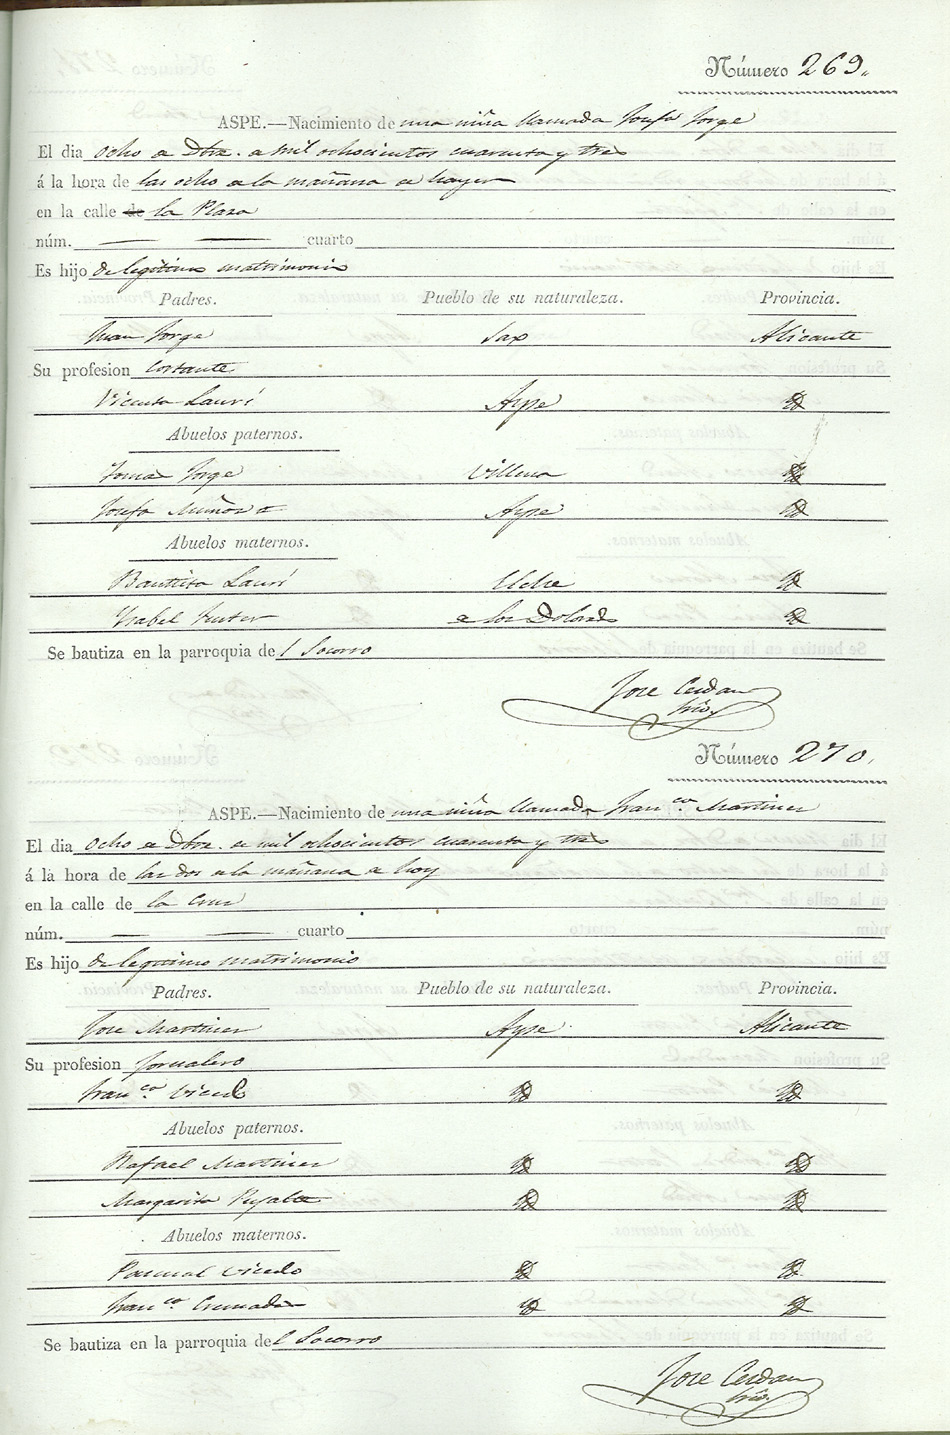 Número 269.
ASPE.—Nacimiento de una niña llamada Josefa Jorge
El dia ocho de Dbre. de mil ochocientos cuarenta y tres
á la hora de las ocho de la mañana de hayer
en la calle de la Plaza
núm. — — cuarto
Es hijo de legitimo matrimonio
Padres. Pueblo de su naturaleza. Provincia.
Juan Jorge Sax Alicante
Su profesion Cortante
Vicenta Laurí Aspe Yd
Abuelos paternos.
Tomas Jorge Villena Yd
Josefa Muñoz Aspe Yd
Abuelos maternos.
Bautista Laurí Elche Yd
Ysabel de los Dolores Yd
Se bautiza en la parroquia del Socorro
Jose Cerdan
Srio.
Número 270.
ASPE.—Nacimiento de una niña llamada Fran.ca Martinez
El dia ocho de Dbre. de mil ochocientos cuarenta y tres
á la hora de las dos de la mañana de hoy
en la calle de la Cruz
núm. — — cuarto
Es hijo de legitimo matrimonio
Padres. Pueblo de su naturaleza. Provincia.
Jose Martinez Aspe Alicante
Su profesion Jornalero
Fran.ca Vicedo Yd Yd
Abuelos paternos.
Rafael Martinez Yd Yd
Margarita Yd Yd
Abuelos maternos.
Pascual Vicedo Yd Yd
Fran.ca Cremades Yd Yd
Se bautiza en la parroquia del Socorro
Jose Cerdan
Srio.